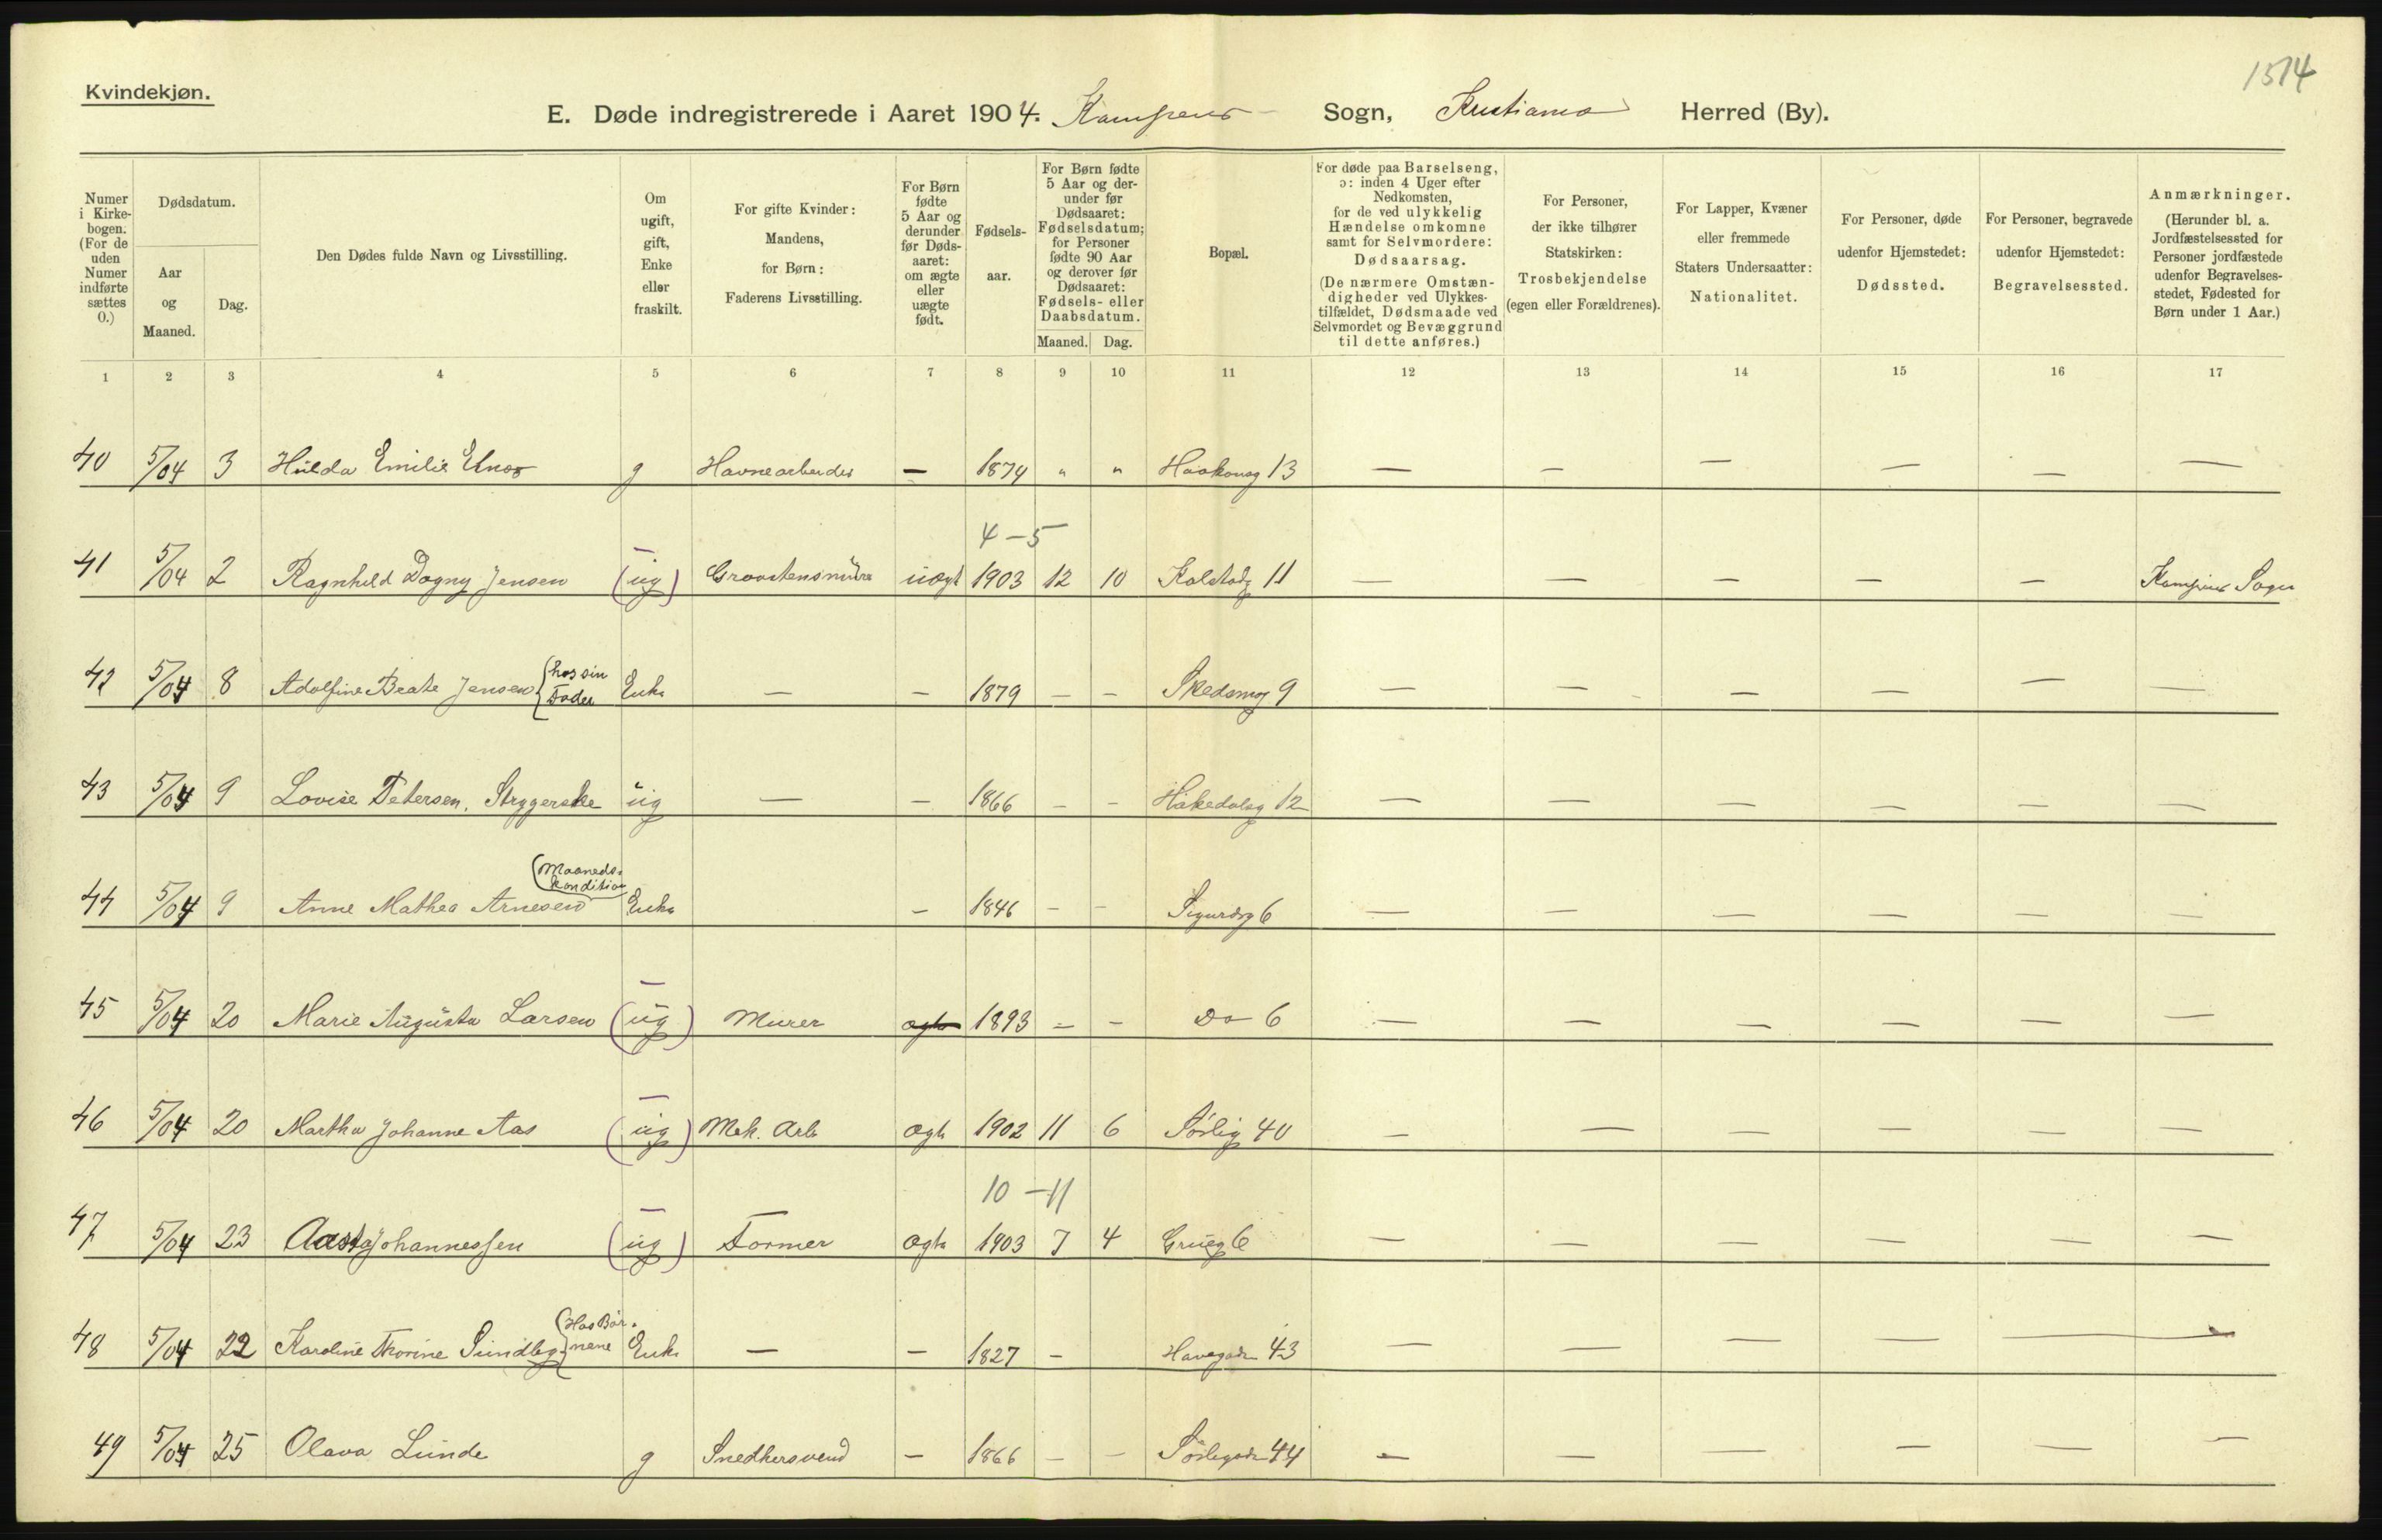 1514
Kvindekjøn.
E. Døde indregistrerede i Aaret 1904. Kampens Sogn, Kristiania Herred (By).
Numer i Kirkebogen. (For de uden Numer indførte sættes 0.)
Dødsdatum.
Aar og Maaned.
Dag.
Den Dødes fulde Navn og Livsstilling.
Om ugift, gift, Enke eller fraskilt.
For gifte Kvinder: Mandens, for Børn: Faderens Livsstilling.
For Børn fødte 5 Aar og derunder før Dødsaaret: om ægte eller uægte født.
Fødselsaar.
For Børn fødte 5 Aar og derunder før Dødsaaret: Fødselsdatum; for Personer fødte 90 Aar og derover før Dødsaaret: Fødsels- eller Daabsdatum.
Maaned. Dag.
Bopæl.
For døde paa Barselseng, ɔ: inden 4 Uger efter Nedkomsten, for de ved ulykkelig Hændelse omkomne samt for Selvmordere: Dødsaarsag. (De nærmere Omstændigheder ved Ulykkestilfældet, Dødsmaade ved Selvmordet og Bevæggrund til dette anføres.)
For Personer, der ikke tilhører Statskirken: Trosbekjendelse (egen eller Forældrenes).
For Lapper, Kvæner eller fremmede Staters Undersaatter: Nationalitet.
For Personer, døde udenfor Hjemstedet: Dødssted.
For Personer, begravede udenfor Hjemstedet: Begravelsessted.
Anmærkninger. (Herunder bl. a. Jordfæstelsessted for Personer jordfæstede udenfor Begravelsesstedet, Fødested for Børn under 1 Aar.)
1 2 3 4 5 6 7 8 9 10 11 12 13 14 15 16 17
40 5/04 3 Hulda Emilie g Havnearbeider — 1874 " " Haakonsg 13 — — — — — —
4 – 5
41 5/04 2 Ragnhild Dagny Jensen (ug) uægt 1903 12 10 Kolstadg 11 — — — — — Kampens Sogn
42 5/04 8 Adolfine Beate Jensen {hos sin Fader Enke — — 1879 — — Skedsmog 9 — — — — — —
43 5/04 9 Lovise Petersen, Strygerske ug — — 1866 – – Hakedalsg 12 — — — — — —
(Maaneds-kondition
44 5/04 9 Anne Mathea Arnesen Enke – 1846 – – Sigurdsg 6 — — — — — —
45 5/04 20 Marie Augusta Larsen (ug) Murer ægte 1893 – – Do 6 — — — — — —
46 5/04 20 Martha Johanne Aas (ug) Mek. Arb ægte 1902 11 6 Sørlig 40 — — — — — —
10 – 11
47 5/04 23 Aasta Johannessen (ug) Former ægte 1903 7 4 Grueg 6 — — — — — —
48 5/04 22 Karoline Thorine Sundbg {Hos Børnene Enke — — 1827 – Havegaden 43 — — — — —
49 5/04 25 Olava Lunde g Snedkersvend — 1866 – – Sørligaden 44 — — — — — —